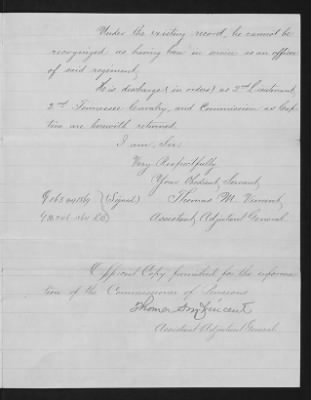 Under the existing record, he cannot be
recognized as having been in service as an officer
of said regiment.
His discharge (in orders) as 2nd Lieutenant,
2nd Tennessee Cavalry, and Commission as Cap-
tain are herewith returned.
I am, Sir,
Very Respectfully,
Your Obedient Servant,
(Signed) Thomas M. Vincent,
Assistant Adjutant General.
Official Copy furnished for the informa-
tion of the Commissioner of Pensions
Thomas M Vincent
Assistant Adjutant General